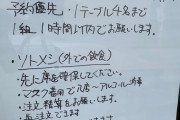 予約優先・1テーブル4名まで
1組 1時間以内でお願いします。
・ソトメシ(外での飲食)
・先に席を確保してください。
・マスク着用で入店〜アルコール消毒
・注文精算をお願いします。